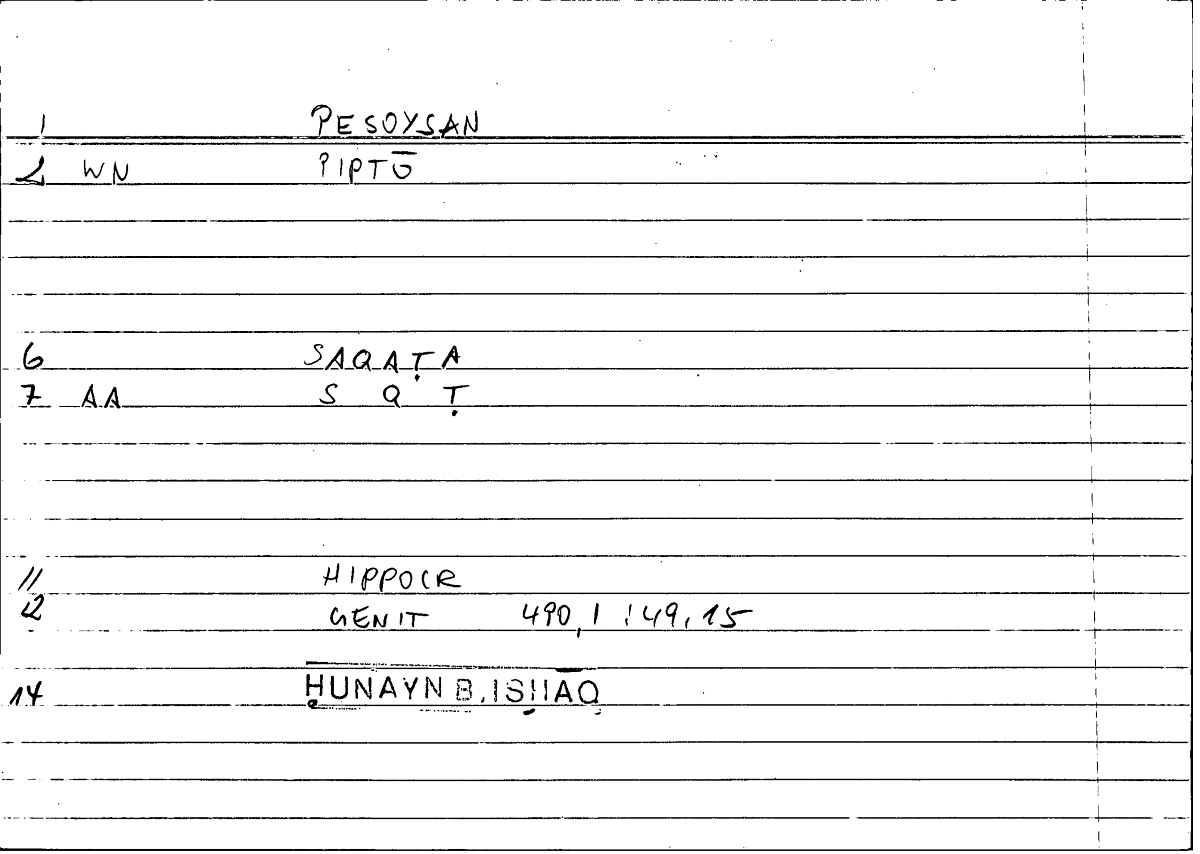 1 PESOYSAN
2 WN PIPTŌ
6 SAQAṬA
7 AA S Q Ṭ
11 HIPPOCR
12 GENIT 490,1 : 49,15
14 ḤUNAYN B. ISḤĀQ